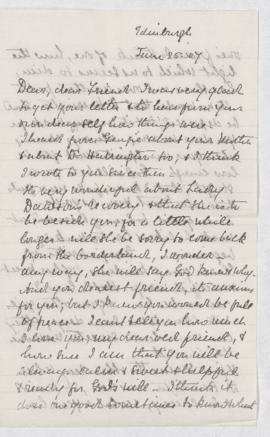 Edinburgh
June 25. 07
Dear, dear Friend I was very glad
to get your letter & to have from your
own dear self how things were.
I heard from Georgie about your Mother
& about Dr Harrington too, & I think
I wrote to you since then
Its very wonderful about Lady
Davidson's recovery & that she is to
be beside you for a little while
longer. Will she be sorry to come back
from the borderland, I wonder
any way, she will say God knows why.
And you dearest friend, its anxious
for you, but I know you would be full
of peace. I can't tell you how much
I love you, my dear old friend, &
how sure I am that you will be
always calm & sweet & helpful
& ready for God's will — I think it
does one good sometimes to know what